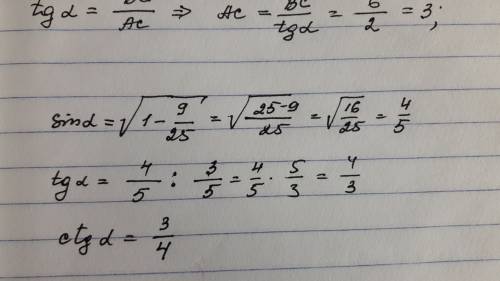 tg α = BC/AC ⇒ AC = BC/tgα = 6/2 = 3;
sin α = √(1 - 9/25) = √((25-9)/25) = √(16/25) = 4/5
tg α = 4/5 : 3/5 = 4/5 · 5/3 = 4/3
ctg α = 3/4